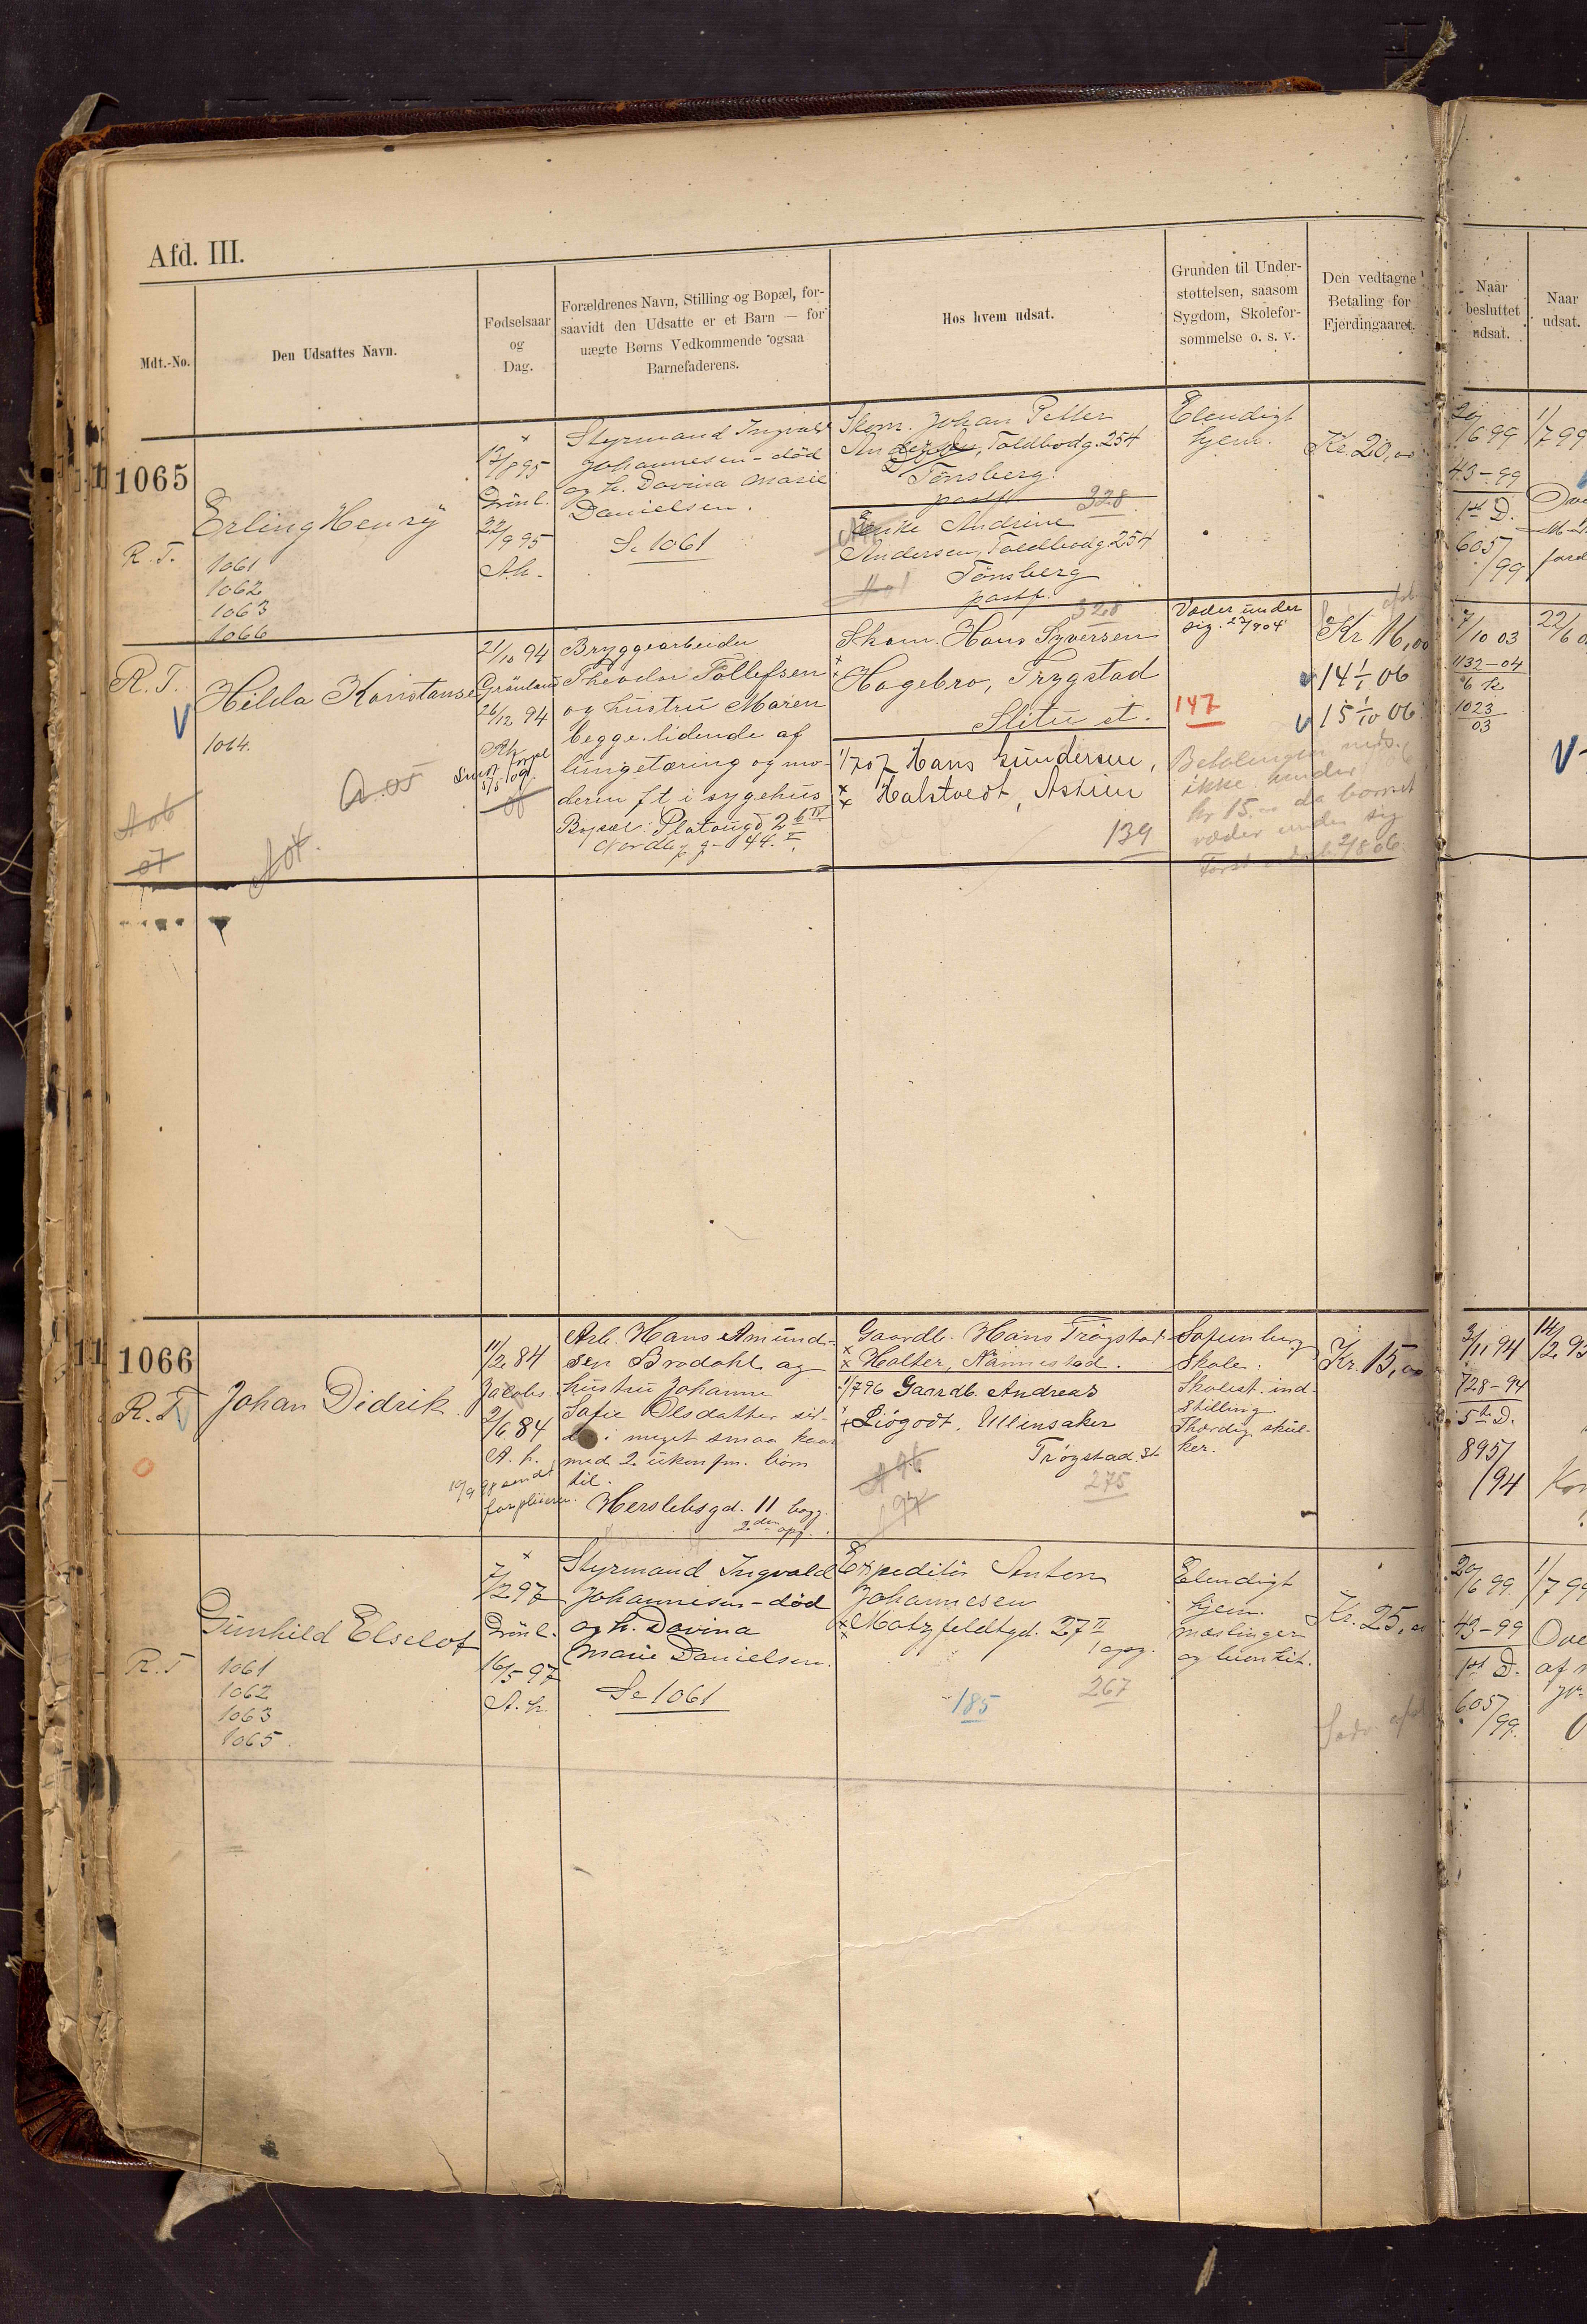 Afd. III.
Mdt.-No.
Den Udsattes Navn.
Fødselsaar
og
Dag.
Forældrenes Navn, Stilling og Bopæl, for-
saavidt den Udsatte er et Barn — for
uægte Børns Vedkommende ogsaa
Barnefaderens.
Hos hvem udsat.
Grunden til Under-
støttelsen, saasom
Sygdom, Skolefor-
sømmelse o. s. v.
Den vedtagne
Betaling for
Fjerdingaaret.
Naar
besluttet
udsat.
Naar
udsat.
1065
R. T.
Erling Henry
1061
1062
1063
1066
17/8 95
Grönl.
22/9 95
A.h.
Styrmand Ingvald
Johannesen - död
og h. Davina Marie
Danielsen.
Se 1061
Skom. Johan Petter
Andersen, Toldbodg. 254
Tönsberg
postf. 328
Enke Andrine
Andersen, Toldbodg. 254
Tönsberg
postf.
328
Elendigt
hjem.
Kr. 20,00
20/6 99
43-99
1ste D.
605/99
1/7 99
R. T.
V
Hilda Konstanse
1064.
A 05
A 06
07
21/10 94
Grönland
26/12 94
Bryggearbeider
Theodor Tollefsen
og hustru Maren
begge lidende af
lungetæring og mo-
deren ft. i sygehus
Bopæl: Platougd 2 b IV
Nordbyg - 44. II.
Skom. Hans Syversen
Hagebro, Trygstad
Slitu st.
1/7 07 Hans Gundersen,
Halstvedt, Askim
139
Væder under
sig. 27/9 04
147
Betalingen neds.
ikke under
kr 15.00 da barnet
væder under sig
2/8 06.
Kr 16,00
14 1/1 06
15 1/10 06
7/10 03
1132-04
1023
03
V
1066
R. T
Johan Didrik
11/2 84
Jacobs.
2/6 84
A. h.
10/9 98 sendt
Arb. Hans Amund-
sen Brodahl og
hustru Johanne
Sofie Olsdatter sid-
i meget smaa kaar
med 2 ukonfm. börn
til.
Herslebsgd. 11 bagg.
2den opg.
Gaardb. Hans Trögstad
Holter, Nannestad.
1/7 96 Gaardb. Andreas
Liögodt, Ullensaker
Trögstad. St
275
A 96
97
Sofienberg
Skole.
Skolest. ind-
stilling.
Thordig skul-
ker.
Kr. 15,00
3/11 94
728-94
5te D.
895/94
R. T
Gunhild Elselof
1061
1062
1063
1065.
7/2 97
Grönl.
16/5 97
A. h.
Styrmand Ingvald
Johannesen - död
og h. Davina
Marie Danielsen.
Se 1061
Expeditör Anton
Johannesen
Motzfeldtgd. 27 II
1 opg.
267
185
Elendigt
hjem.
mæslinger
og bronkit.
Kr. 25,00
20/6 99.
43-99
1ste D.
605/99.
1/7 99